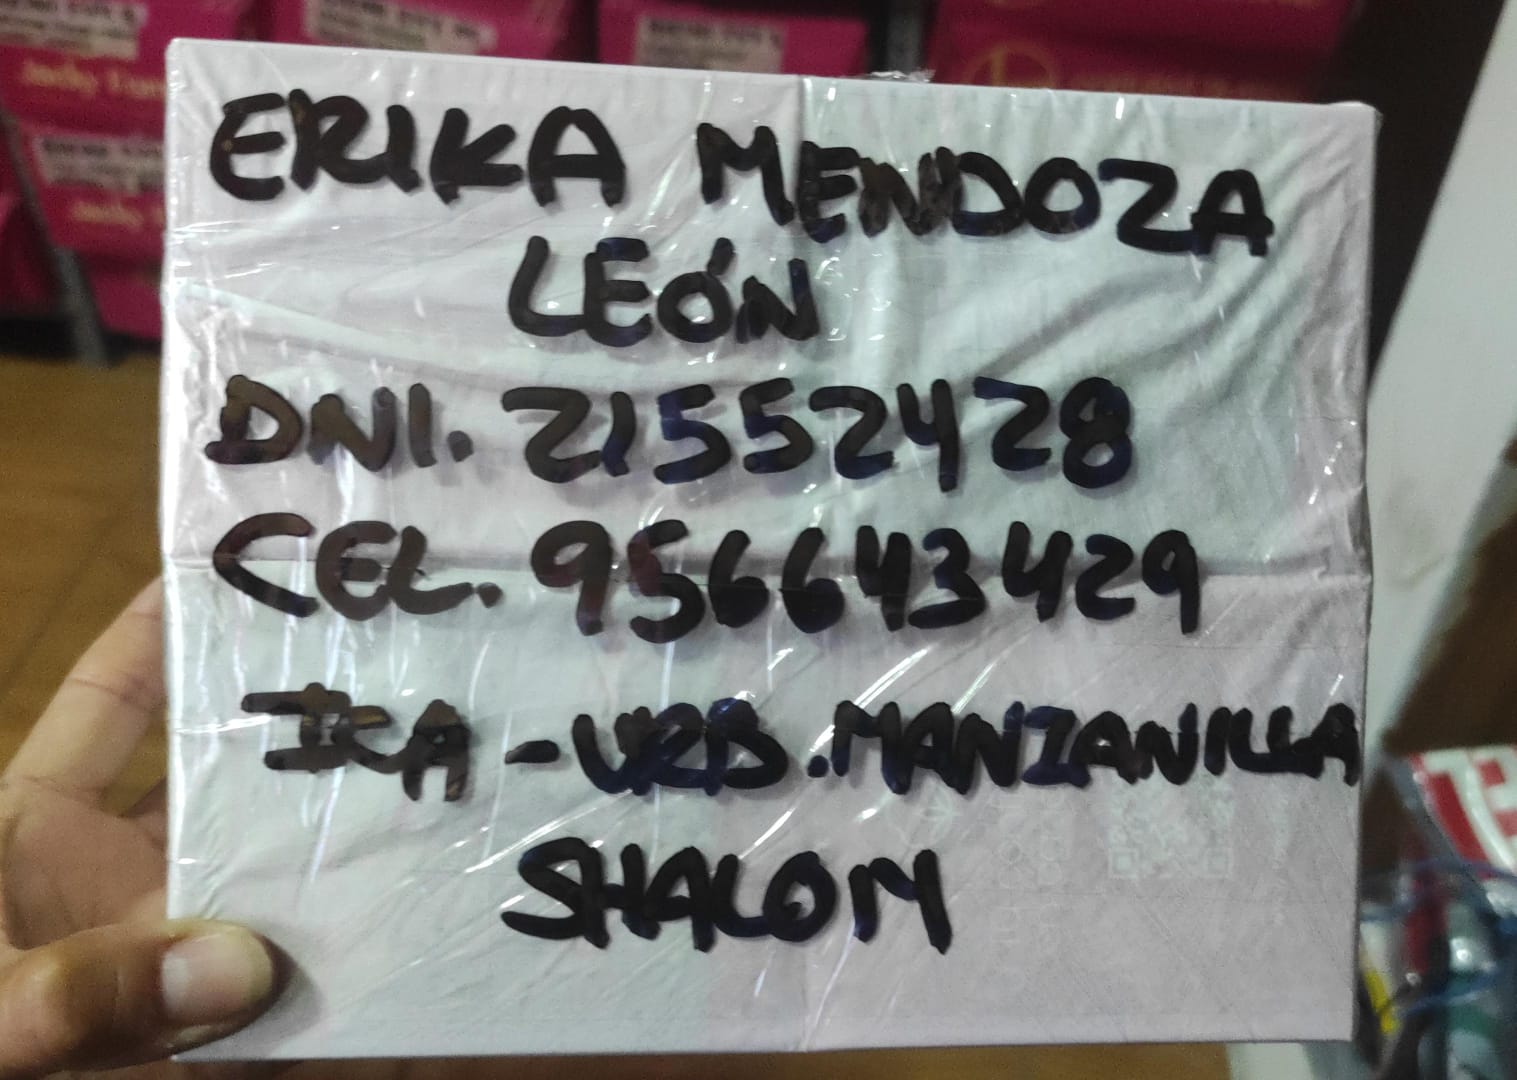 ERIKA MENDOZA
LEÓN
DNI. 21552428
CEL. 956643429
ICA - URB. MANZANILLA
SHALOM